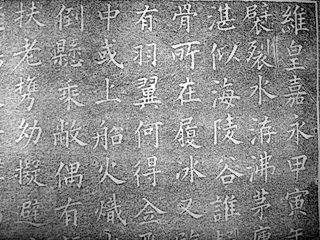 維皇嘉永甲寅年
劈裂水游沸茅
湛似海陵谷誰
骨所在履冰又
有羽翼何得
中或上船火熾
倒懸乘敝偶有
扶老携幼擬避